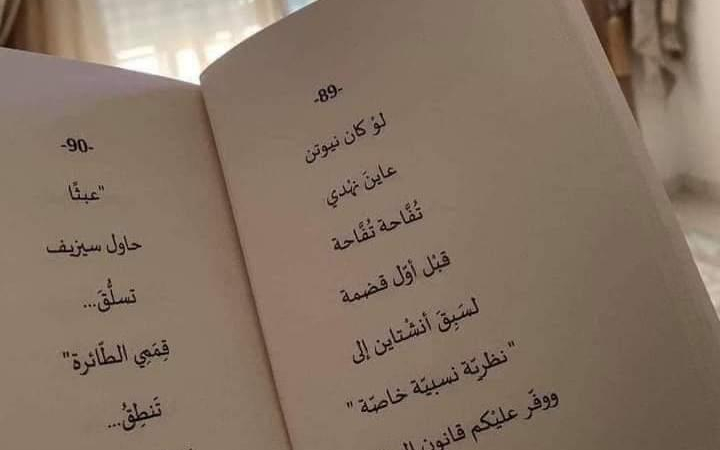 -89-
لوْ كان نيوتن
عاينَ نهْدي
تُفَّاحة تُفَّاحة
قبْل أوّل قضمة
لسَبِقَ أنشْتاين إلى
"نظريّة نسبيّة خاصّة "
ووفّر عليْكم قانون
-90-
"عبثًا
حاول سيزيف
تسلُّقَ...
قِمَمِي الطّائرة"
تَنطِقُ...